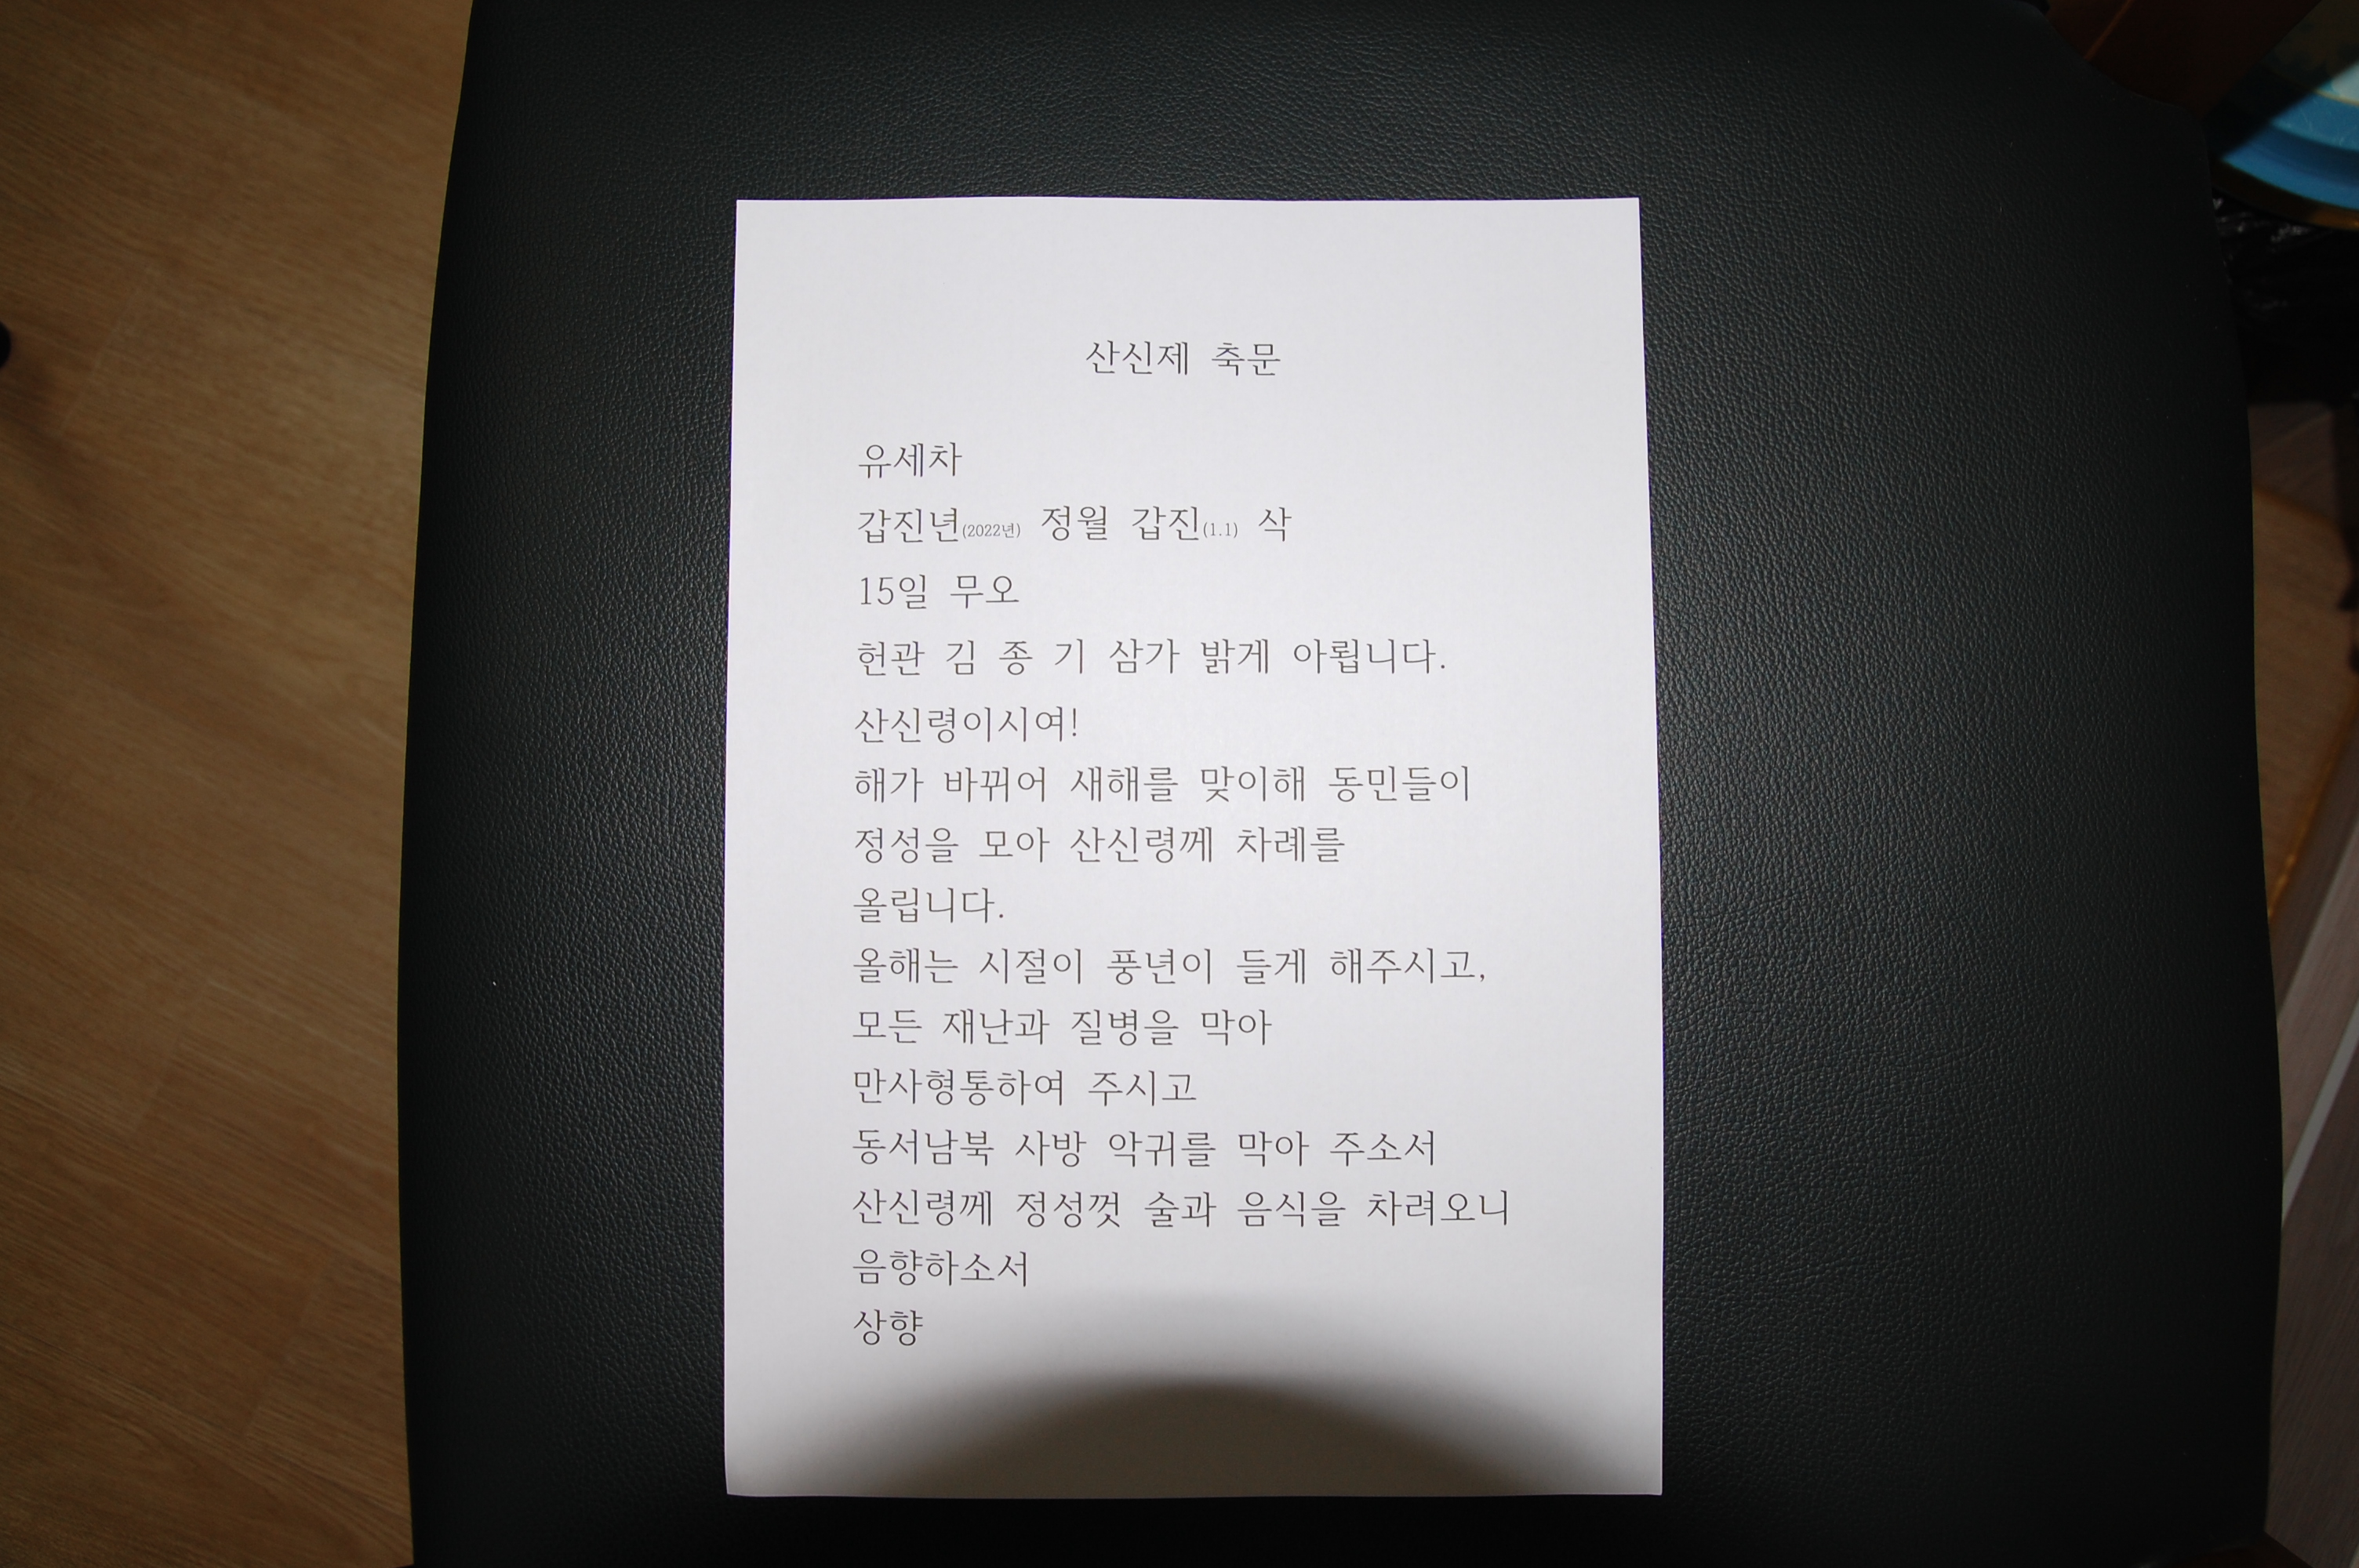 산신제 축문
유세차
갑진년(2022년) 정월 갑진(1.1) 삭
15일 무오
헌관 김 종 기 삼가 밝게 아룁니다.
산신령이시여!
해가 바뀌어 새해를 맞이해 동민들이
정성을 모아 산신령께 차례를
올립니다.
올해는 시절이 풍년이 들게 해주시고,
모든 재난과 질병을 막아
만사형통하여 주시고
동서남북 사방 악귀를 막아 주소서
산신령께 정성껏 술과 음식을 차려오니
음향하소서
상향